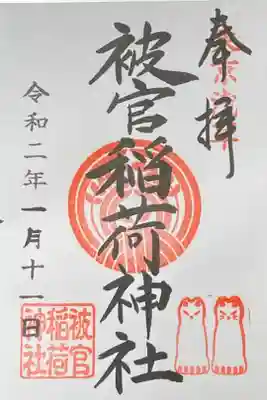 奉拝
被官稲荷神社
令和二年一月十一日
被官
稲荷
神社